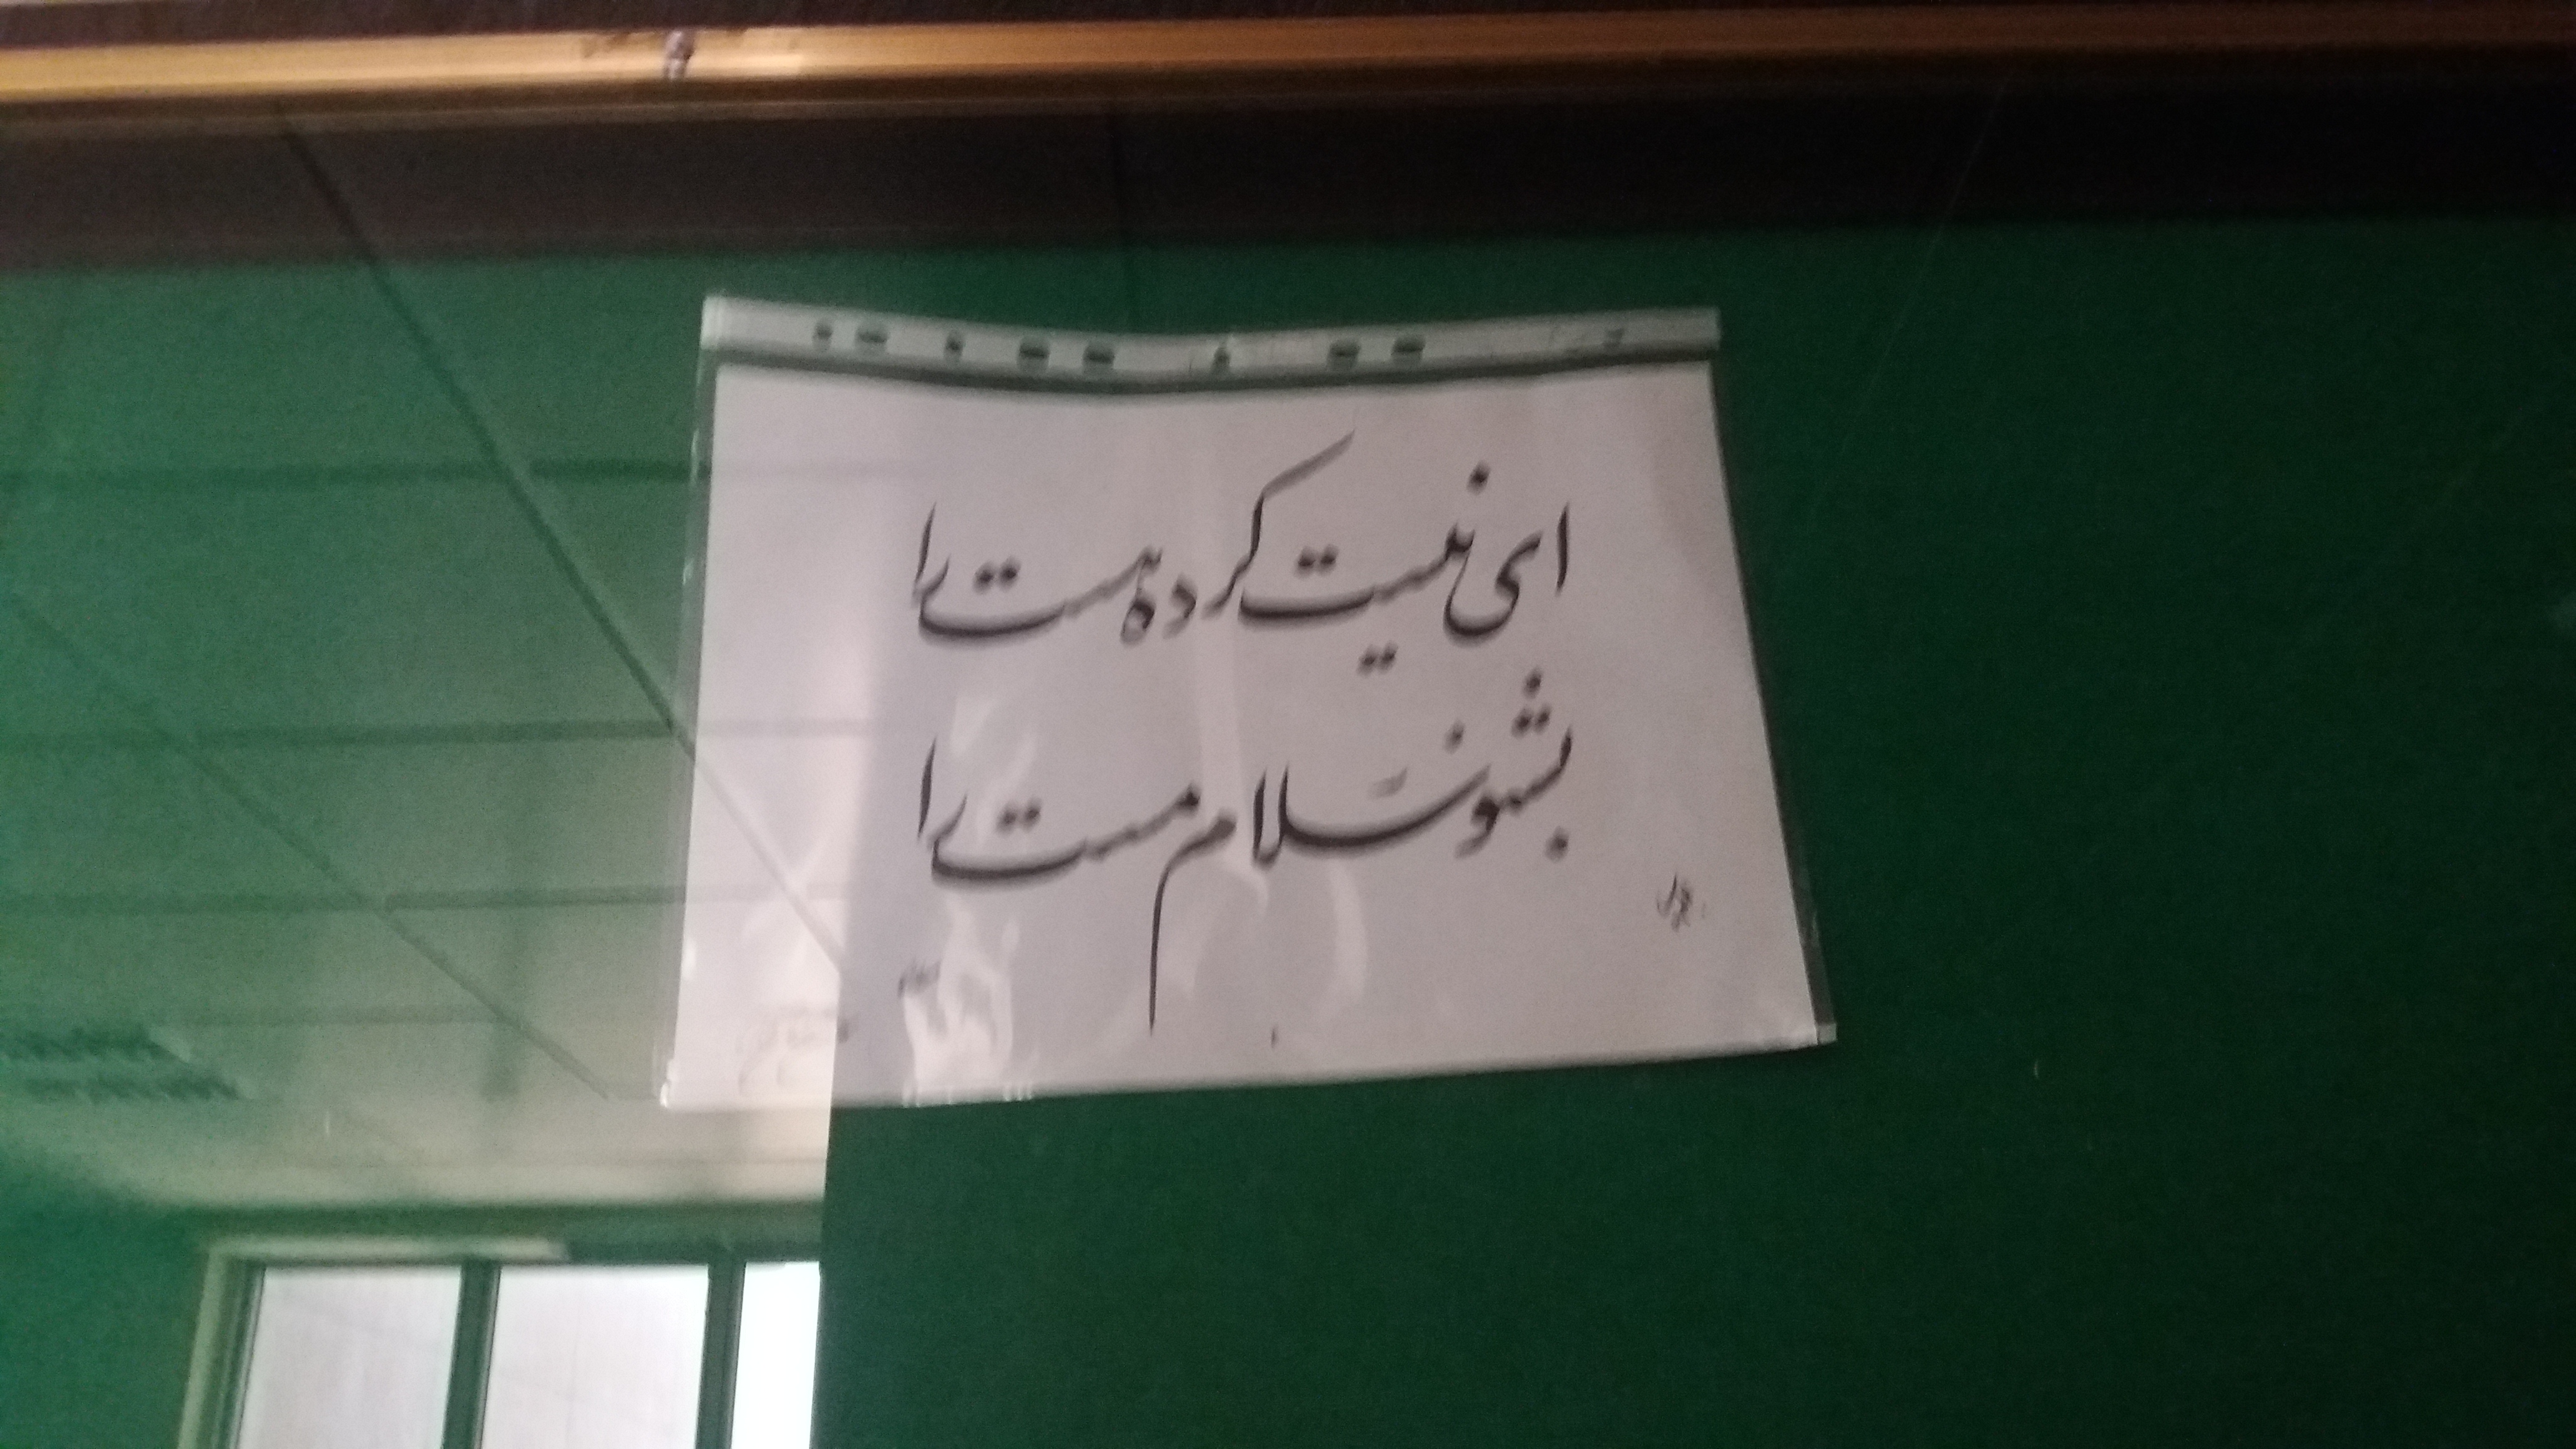 ای نیست کرده هست را
بشنو سلام مست را